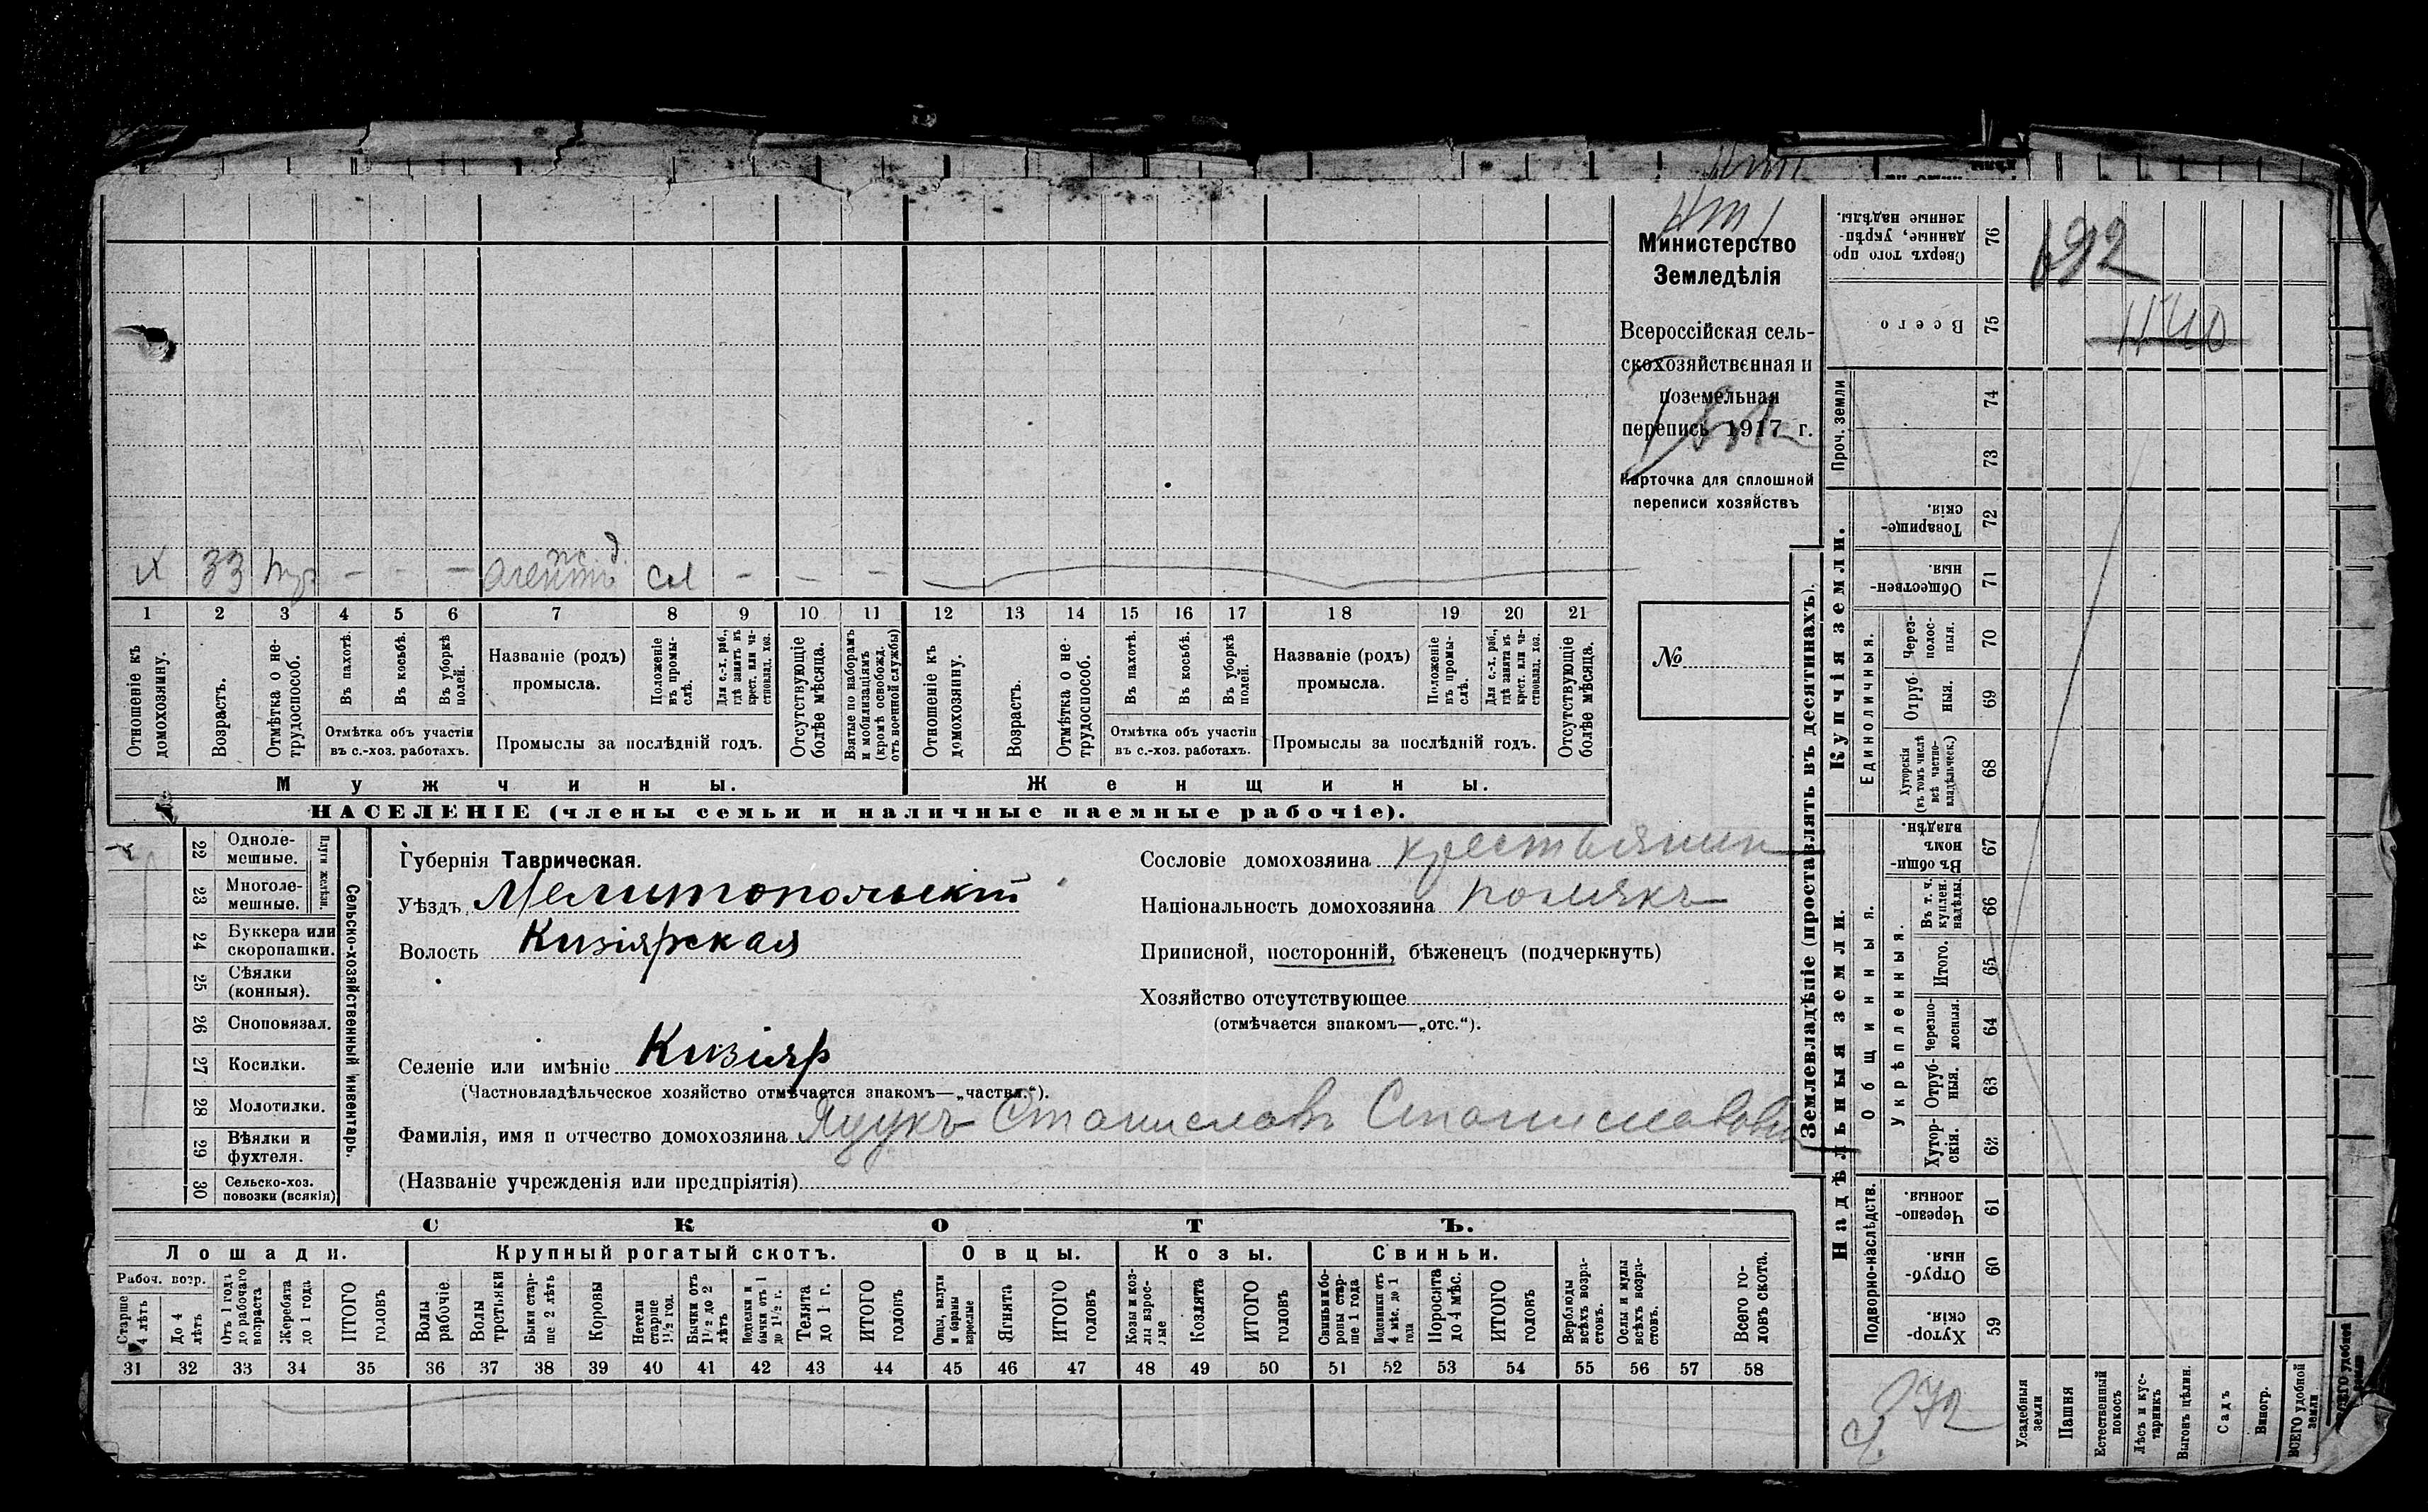 Министерство
Земледѣлія
Всероссійская сель-
скохозяйственная и
поземельная
перепись 1917 г.
Карточка для сплошной
переписи хозяйствъ
№
х 33 – – – агентъ сл – – –
1 2 3 4 5 6 7 8 9 10 11 12 13 14 15 16 17 18 19 20 21
Отношеніе къ домохозяину.
Возрастъ.
Отмѣтка о не-трудоспособ.
Въ пахотѣ.
Въ косьбѣ.
Въ уборкѣ полей.
Отмѣтка объ участіи въ с.-хоз. работахъ.
Названіе (родъ) промысла.
Положеніе въ промы-слѣ.
Для с.-х. раб., гдѣ занятъ въ крест. или ча-стновлад. хоз.
Промыслы за послѣдній годъ.
Отсутствующіе болѣе мѣсяца.
Взятые по наборамъ и мобилизаціямъ (кромѣ освобожд. отъ военной службы)
Отношеніе къ домохозяину.
Возрастъ.
Отмѣтка о не-трудоспособ.
Въ пахотѣ.
Въ косьбѣ.
Въ уборкѣ полей.
Отмѣтка объ участіи въ с.-хоз. работахъ.
Названіе (родъ) промысла.
Положеніе въ промы-слѣ.
Для с.-х. раб., гдѣ занята въ крест. или ча-стновлад. хоз.
Промыслы за послѣдній годъ.
Отсутствующіе болѣе мѣсяца.
Мужчины. Женщины.
НАСЕЛЕНІЕ (члены семьи и наличные наемные рабочіе).
Сельско-хозяйственный инвентарь.
Плуги желѣзн.
22 Одноле-мешные.
23 Многоле-мешные.
24 Буккера или скоропашки.
25 Сѣялки (конныя).
26 Сноповязал.
27 Косилки.
28 Молотилки.
29 Вѣялки и фухтеля.
30 Сельско-хоз. повозки (всякія)
Губернія Таврическая.
Уѣздъ Мелитопольскій
Волость Кизіярская
Селеніе или имѣніе Кизіяр
(Частновладѣльческое хозяйство отмѣчается знакомъ—„частвл.“).
Фамилія, имя и отчество домохозяина Яцукъ Станиславъ Станиславови
(Названіе учрежденія или предпріятія)
Сословіе домохозяина крестьянин
Національность домохозяина полякъ
Приписной, посторонній, бѣженецъ (подчеркнуть)
Хозяйство отсутствующее
(отмѣчается знакомъ—„отс.“).
СКОТЪ.
Лошади. Крупный рогатый скотъ. Овцы. Козы. Свиньи.
Рабоч. возр.
Старше 4 лѣтъ
До 4 лѣтъ
Отъ 1 года до рабочаго возраста
Жеребята до 1 года
ИТОГО головъ
Волы рабочіе
Волы третьяки
Быки стар-ше 2 лѣтъ
Коровы
Нетели старше 1½ год.
Бычки отъ 1½ до 2 лѣтъ
Подтелки и бычки отъ 1 до 1½ г.
Телята до 1 г.
ИТОГО головъ
Овцы, валухи и бараны взрослые
Ягнята
ИТОГО головъ
Козы и коз-лы взрос-лые
Козлята
ИТОГО головъ
Свиньи и бо-ровы стар-ше 1 года
Подсвинки отъ 4 мѣс. до 1 года
Поросята до 4 мѣс.
ИТОГО головъ
Верблюды всѣхъ возра-стовъ.
Ослы и мулы всѣхъ возра-стовъ.
Всего го-ловъ скота.
31 32 33 34 35 36 37 38 39 40 41 42 43 44 45 46 47 48 49 50 51 52 53 54 55 56 57 58
Землевладѣніе (проставлять въ десятинахъ).
Сверхъ того про-данные, укрѣп-ленные надѣлы. 76
Всего 75
1140
Проч. земли 74
73
Купчія земли.
Товарище-скія. 72
Обществен-ныя. 71
Единоличныя.
Через-полос-ныя. 70
Отруб-ныя. 69
Хуторскія (въ томъ числѣ всѣ частно-владѣльческ.) 68
Надѣльныя земли.
Общинныя.
Въ общи-номъ владѣн. 67
Укрѣпленныя.
Въ т. ч. куплен. надѣлы. 66
Итого. 65
Черезпо-лосныя. 64
Отруб-ныя. 63
Хутор-скія. 62
Подворно-наслѣдств.
Черезпо-лосныя. 61
Отруб-ныя. 60
Хутор-скія. 59
Усадебныя земли
Пашня
Естественный покосъ
Лѣсъ и кус-тарникъ
Выгонъ цѣлин.
Садъ
Виногр.
ВСЕГО удобной земли